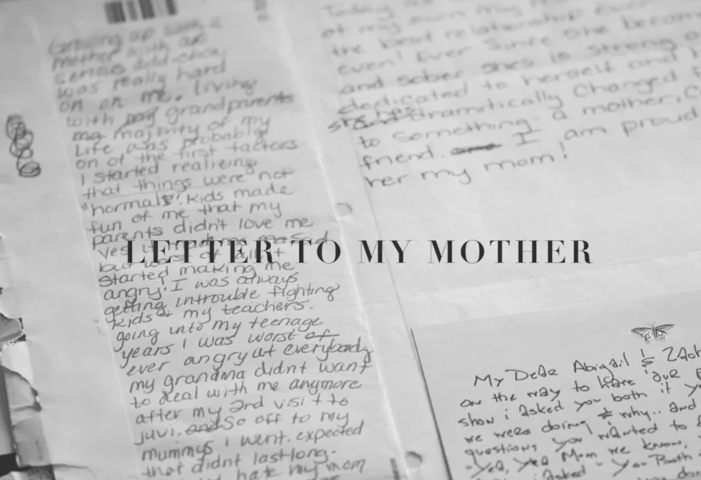 Growing up with a
mother with a
serious addiction
was really hard
on on me. Living
with my grandparents
my majority of my
Life was probably
on of the first factors
I started realizing
that things were not
"normal". Kids made
fun of me that my
parents didn't love me
Yes
but
started making me
angry. I was always
getting introuble fighting
kids & my teachers.
going into my teenage
years I was worst of
ever angry at everybody
my grandma didnt want
to deal with me anymore
after my 2nd visit to
juvi. and so off to my
mummys I went. expected
that didnt last long.
hate my mom
Today
of my own my
the best relationship
even! Ever since she became
and sober she is strong a
dedicated to herself and h
she has dramatically changed f
to something. a mother, C
friend. I am proud
her my mom!
LETTER TO MY MOTHER
My Dear Abigail & Zach
on the way to have our
show i asked you both if y
we were doing & why.. and
questions you wanted to
-Yes, Yes Mom we know,
i asked - You Both